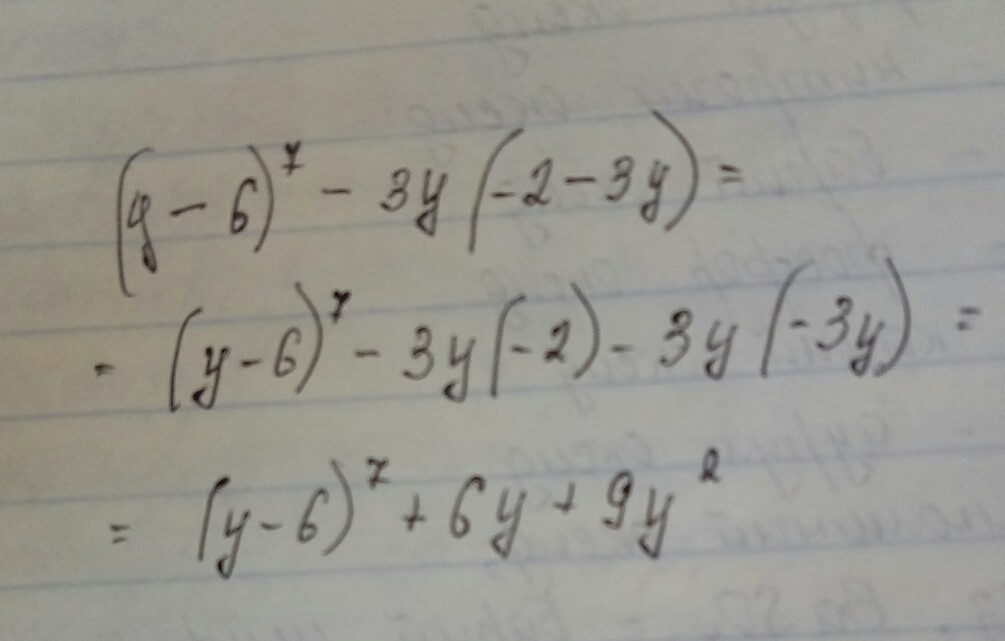 (y - 6)⁷ - 3y (-2 - 3y) =
= (y - 6)⁷ - 3y (-2) - 3y (-3y) =
= (y - 6)⁷ + 6y + 9y²